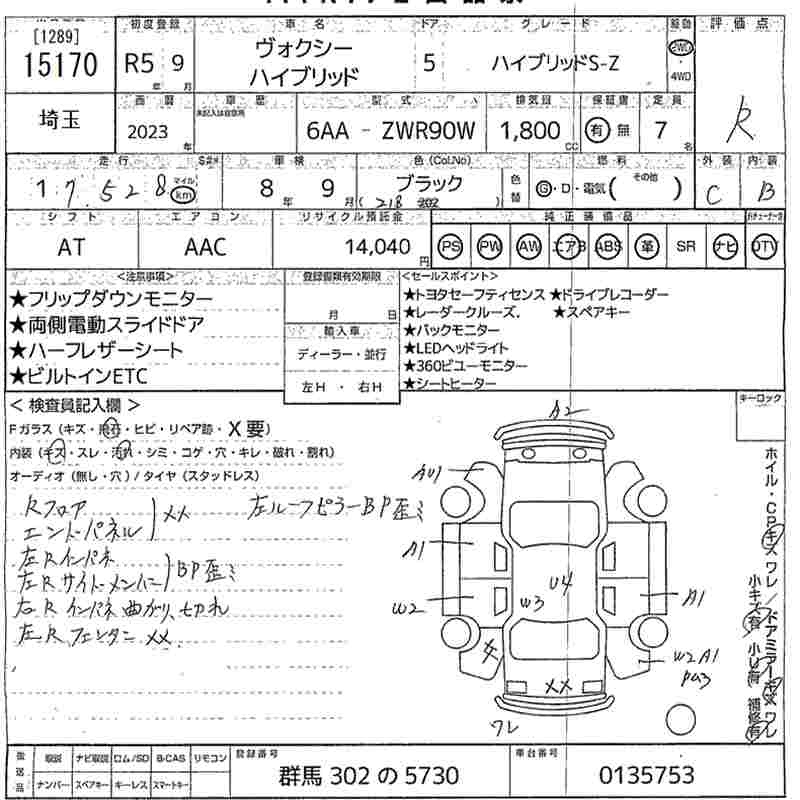 [1289]
15170
初度登録
R5 9
年 月
車名
ヴォクシー
ハイブリッド
ドア
5
グレード
ハイブリッドS-Z
駆動
2WD
・
4WD
評価点
R
埼玉
西暦
2023
年
車歴
未記入は自家用
型式
6AA - ZWR90W
排気量
1,800
CC
保証書
有 無
定員
7
名
走行
17,528
マイル
km
車検
8 年 9 月
色(Col.No)
ブラック
(218 202)
色替
燃料
G・D・電気(その他)
外装
C
内装
B
シフト
AT
エアコン
AAC
リサイクル預託金
14,040
円
純正装備品
PS PW AW エアB ABS 革 SR ナビ DTV
<注意事項>
★フリップダウンモニター
★両側電動スライドドア
★ハーフレザーシート
★ビルトインETC
登録書類有効期限
月 日
輸入車
ディーラー・並行
左H ・ 右H
<セールスポイント>
★トヨタセーフティセンス ★ドライブレコーダー
★レーダークルーズ、 ★スペアキー
★バックモニター
★LEDヘッドライト
★360ビューモニター
★シートヒーター
< 検査員記入欄 >
Fガラス (キズ・飛石・ヒビ・リペア跡・X要)
内装 (キズ・スレ・汚れ・シミ・コゲ・穴・キレ・破れ・割れ)
オーディオ (無し・穴) / タイヤ (スタッドレス)
Rフロア
エンドパネル
XX
左ルーフピラーBP歪ミ
左Rインパネ
左Rサイドメンバー
BP歪ミ
右Rインパネ曲がり、切れ
左Rフェンダー XX
キーロック
A2
AU1
A1
W2
U4
W3
A1
W2A1
PU3
XX
XX
ワレ
ホイル・CPキズ ワレ / ドアミラーキズ ワレ
小キズ有 小U有 補修有
後送品
取説 ナビ取説 ロム/SD B-CAS リモコン
ナンバー スペアキー キーレス スマートキー
登録番号
群馬 302 の 5730
車台番号
0135753